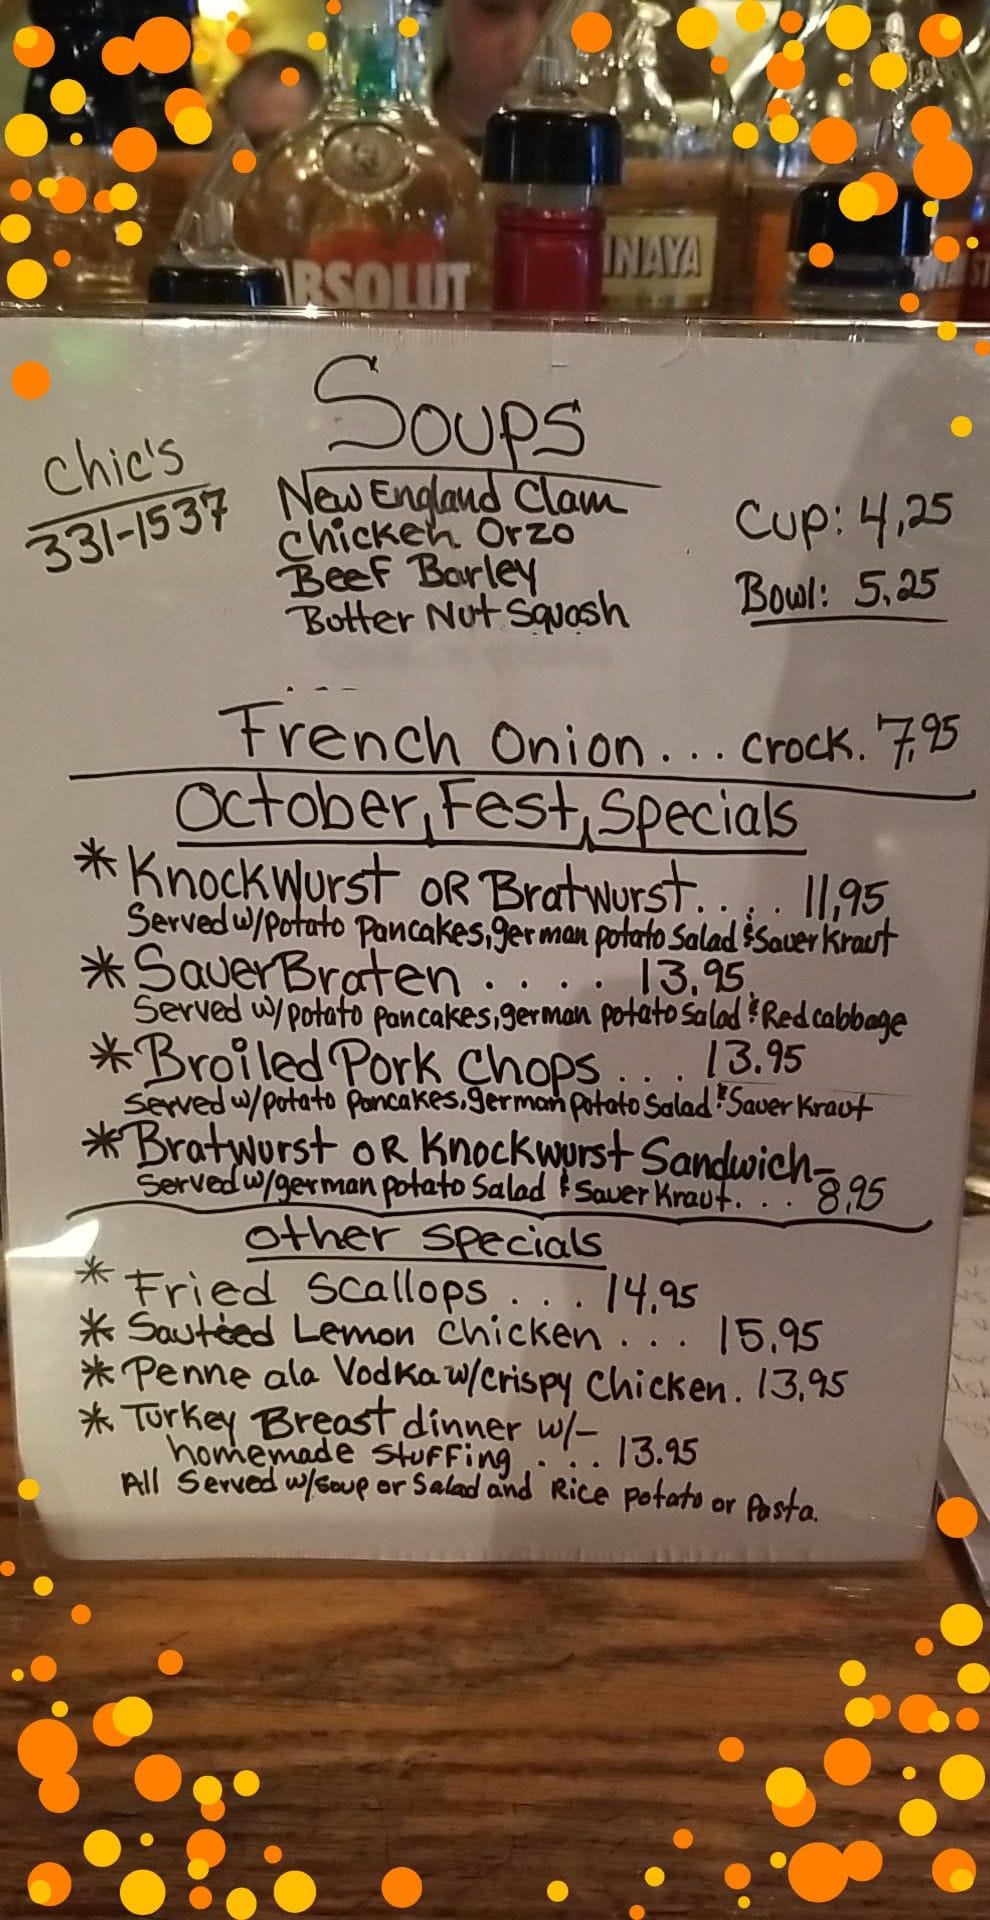 ABSOLUT
INAYA
Soups
Chic's
331-1537
New England Clam
Chicken Orzo
Beef Barley
Butter Nut Squash
Cup: 4,25
Bowl: 5,25
French Onion... crock. 7,95
October, Fest, Specials
* Knockwurst OR Bratwurst.... 11,95
Served w/potato Pancakes, german potato Salad & Sauer Kraut
* SauerBraten ..... 13.95
Served w/potato pancakes, german potato Salad & Red cabbage
* Broiled Pork Chops.... 13.95
Served w/potato pancakes, german potato Salad & Sauer Kraut
* Bratwurst OR Knockwurst Sandwich-
Served w/german potato Salad & Sauer Kraut.... 8,95
other specials
* Fried Scallops.... 14.95
* Sautéed Lemon Chicken.... 15,95
* Penne ala Vodka w/crispy Chicken. 13,95
* Turkey Breast dinner w/-
homemade Stuffing.... 13.95
All Served w/soup or Salad and Rice potato or Pasta.